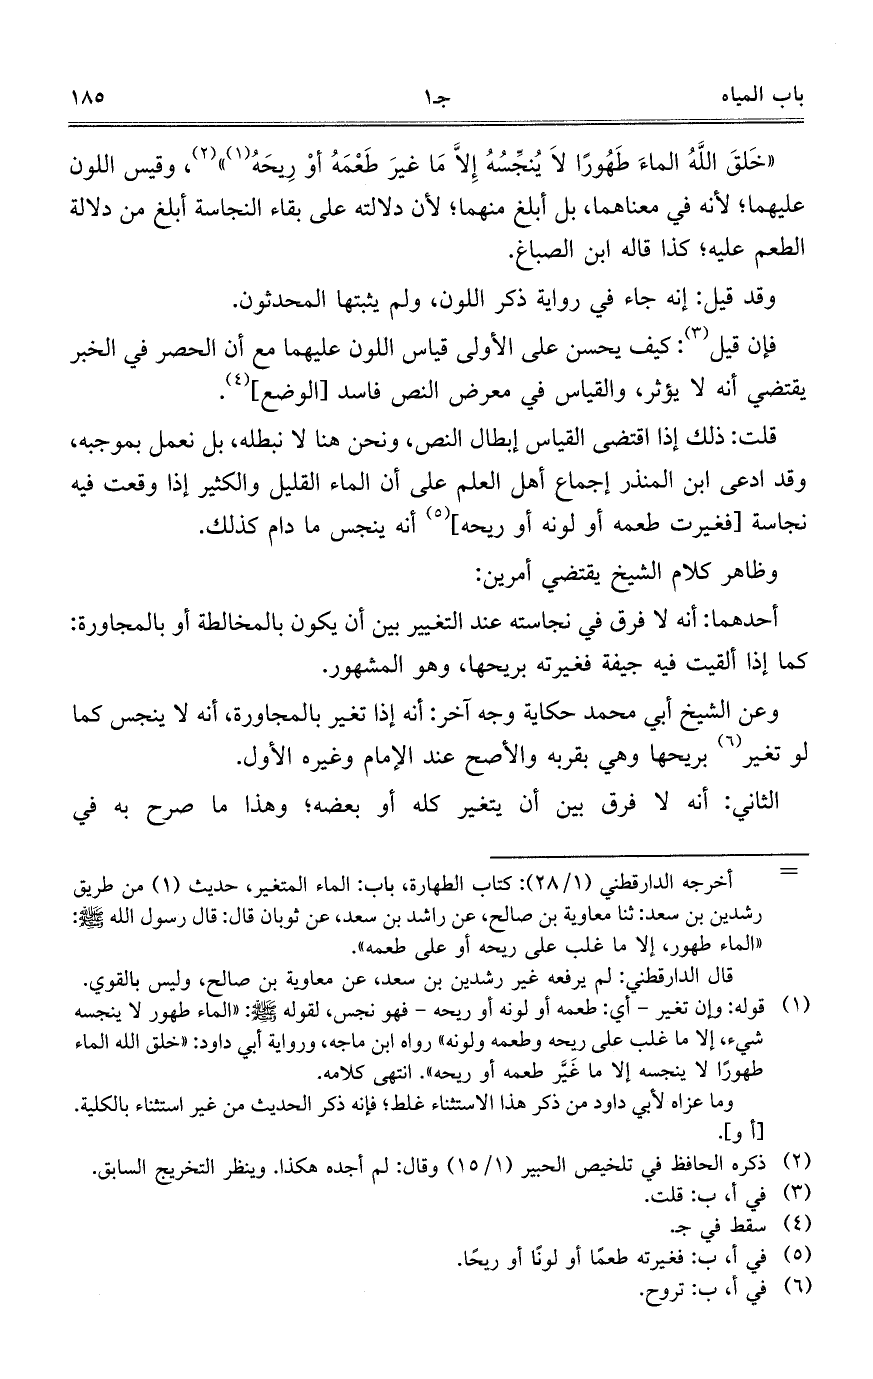 باب المياه جـ١ ١٨٥
«خَلَقَ اللَّهُ الماءَ طَهُورًا لاَ يُنَجِّسُهُ إِلاَّ مَا غيرَ طَعْمَهُ أوْ رِيحَهُ(١)»(٢)، وقيس اللون
عليهما؛ لأنه في معناهما، بل أبلغ منهما؛ لأن دلالته على بقاء النجاسة أبلغ من دلالة
الطعم عليه؛ كذا قاله ابن الصباغ.
وقد قيل: إنه جاء في رواية ذكر اللون، ولم يثبتها المحدثون.
فإن قيل(٣): كيف يحسن على الأولى قياس اللون عليهما مع أن الحصر في الخبر
يقتضي أنه لا يؤثر، والقياس في معرض النص فاسد [الوضع](٤).
قلت: ذلك إذا اقتضى القياس إبطال النص، ونحن هنا لا نبطله، بل نعمل بموجبه،
وقد ادعى ابن المنذر إجماع أهل العلم على أن الماء القليل والكثير إذا وقعت فيه
نجاسة [فغيرت طعمه أو لونه أو ريحه](٥) أنه ينجس ما دام كذلك.
وظاهر كلام الشيخ يقتضي أمرين:
أحدهما: أنه لا فرق في نجاسته عند التغيير بين أن يكون بالمخالطة أو بالمجاورة:
كما إذا ألقيت فيه جيفة فغيرته بريحها، وهو المشهور.
وعن الشيخ أبي محمد حكاية وجه آخر: أنه إذا تغير بالمجاورة، أنه لا ينجس كما
لو تغير(٦) بريحها وهي بقربه والأصح عند الإمام وغيره الأول.
الثاني: أنه لا فرق بين أن يتغير كله أو بعضه؛ وهذا ما صرح به في
= أخرجه الدارقطني (٢٨/١): كتاب الطهارة، باب: الماء المتغير، حديث (١) من طريق
رشدين بن سعد: ثنا معاوية بن صالح، عن راشد بن سعد، عن ثوبان قال: قال رسول الله ﷺ:
«الماء طهور، إلا ما غلب على ريحه أو على طعمه».
قال الدارقطني: لم يرفعه غير رشدين بن سعد، عن معاوية بن صالح، وليس بالقوي.
(١) قوله: وإن تغير - أي: طعمه أو لونه أو ريحه - فهو نجس، لقوله ﷺ: «الماء طهور لا ينجسه
شيء، إلا ما غلب على ريحه وطعمه ولونه» رواه ابن ماجه، ورواية أبي داود: «خلق الله الماء
طهورًا لا ينجسه إلا ما غَيَّر طعمه أو ريحه». انتهى كلامه.
وما عزاه لأبي داود من ذكر هذا الاستثناء غلط؛ فإنه ذكر الحديث من غير استثناء بالكلية.
[أ و].
(٢) ذكره الحافظ في تلخيص الحبير (١٥/١) وقال: لم أجده هكذا. وينظر التخريج السابق.
(٣) في أ، ب: قلت.
(٤) سقط في جـ.
(٥) في أ، ب: فغيرته طعمًا أو لونًا أو ريحًا.
(٦) في أ، ب: تروح.